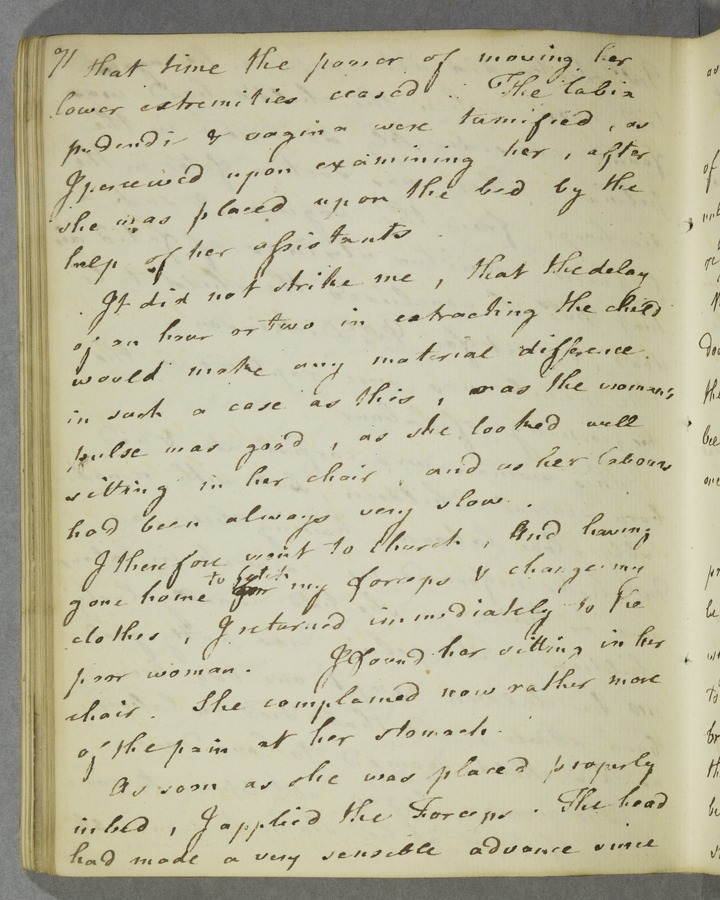 71 that time the power of moving her
lower extremities ceased . The labia
pudendi & vagina were tumified , as
I perceived upon examining her , after
she was placed upon the bed by the
help of her assistants .
It did not strike me , that the delay
of an hour or two in extracting the child
would make any material difference
in such a case as this , as the woman's
pulse was good , as she looked well
sitting in her chair , and as her labours
had been always very slow .
I therefore went to church , And having
gone home to fetch my forceps & change my
clothes , I returned immediately to the
poor woman . I found her sitting in her
chair . She complained now rather more
of the pain at her stomach .
As soon as she was placed properly
in bed , I applied the Forceps . The head
had made a very sensible advance since